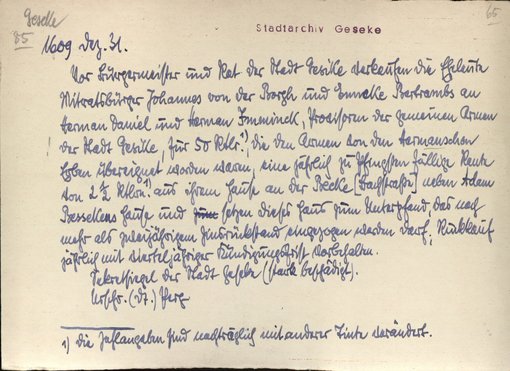 Geseke
85
65
Stadtarchiv Geseke
1609 Dez. 31.
Vor Bürgermeister und Rat der Stadt Geseke verkaufen die Eheleute
Mitratsbürger Johannes von der Borgh und Enneke Bertrambs an
Herman Daniel und Herman Ininck, Provisoren der gemeinen Armen
der Stadt Geseke, für 50 Rtlr.¹), die den Armen von den Hermanschen
Erben übereignet worden waren, eine jährlich zu Pfingsten fällige Rente
von 2½ Rtlrn.¹) aus ihrem Hause an der Becke [Bachstraße] neben Adam
Besselkens Hause und setzen dieses Haus zum Unterpfand, das nach
mehr als zweijährigem Zinsrückstand eingezogen werden darf; Rückkauf
jährlich mit vierteljähriger Kündigungsfrist vorbehalten.
Sekretsiegel der Stadt Geseke (stark beschädigt).
Urschr. (dt.) Perg.
1) Die Zahlangaben sind nachträglich mit anderer Tinte verändert.